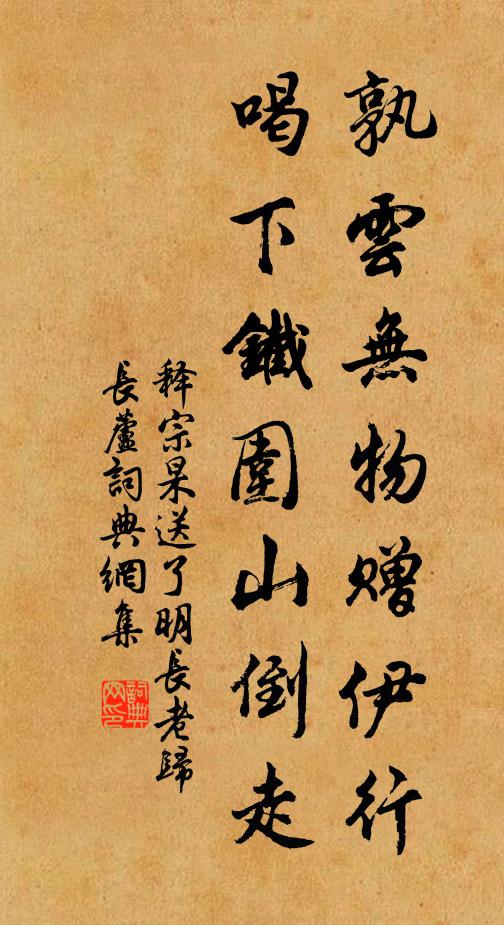 孰雲無物贈伊行
喝下鐵圍山倒走
释宗杲送了明長老歸
長蘆詞典網集
詞典网印